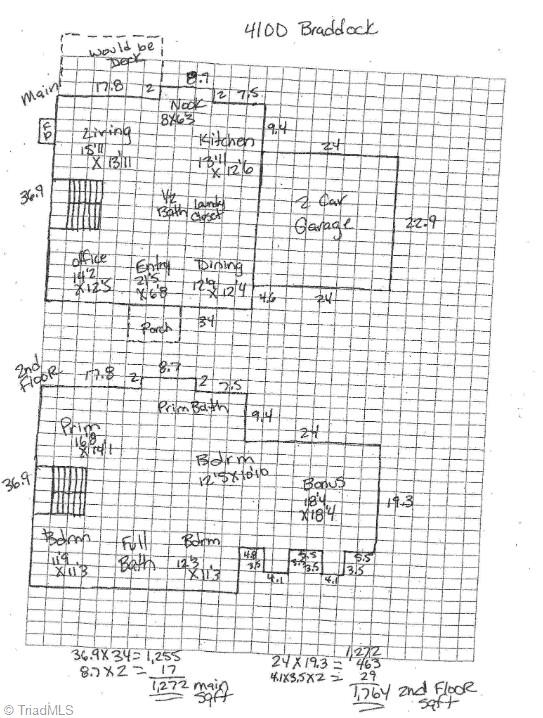 4100 Braddock
would be
Deck
Main
17.8 2 8.7 2 7.5
Nook
8x6'3
FP
Living
15'11
x 13'11
Kitchen
13'11
x 12'6
9.4
24
36.9
1/2
Bath
laundry
closet
2 Car
Garage
22.9
office
14'2
x12'5
Entry
21'5
x6'8
Dining
12'9
x 12'4
4.6
24
Porch
34
2nd
Floor
17.8 2 8.7 2 7.5
Prim Bath
9.4
24
Prim
16'8
x14'1
Bdrm
12'5x10'10
Bonus
18'4
x18'4
36.9
19.3
Bdrm
11'9
x11'3
Full
Bath
Bdrm
12'3
x11'3
4.8
3.5
4.1
5.5
3.5
3.5
4.1
5.5
3.5
36.9x34=1,255
8.7x2= 17
1,272 main
sqft
1,272
24x19.3= 463
4.1x3.5x2= 29
1,764 2nd Floor
sqft
© TriadMLS